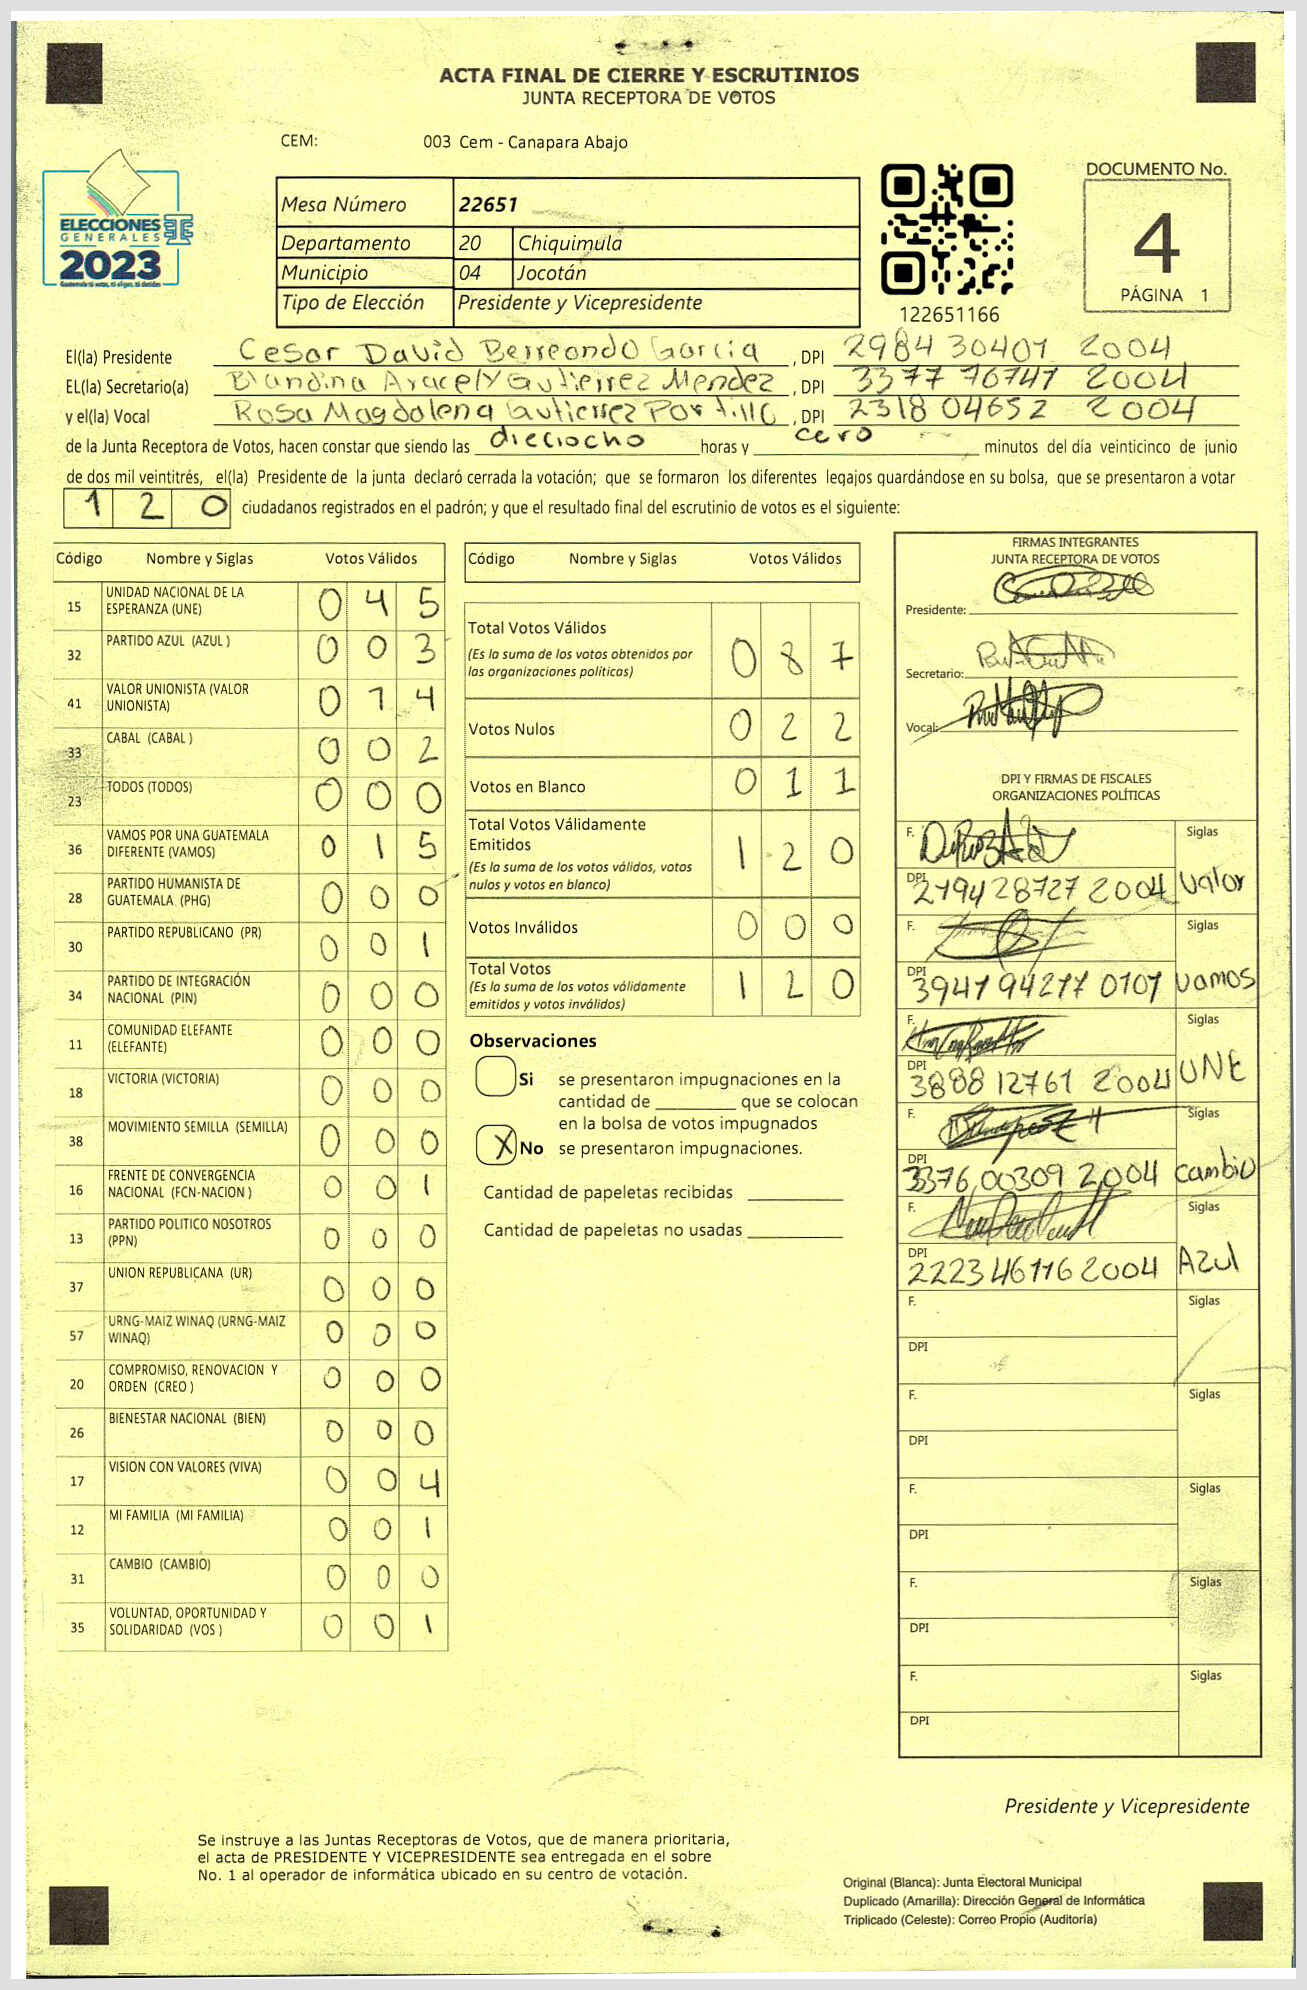 ACTA FINAL DE CIERRE Y ESCRUTINIOS
JUNTA RECEPTORA DE VOTOS
CEM: 003 Cem - Canapara Abajo
ELECCIONES
GENERALES
2023
Mesa Número 22651
Departamento 20 Chiquimula
Municipio 04 Jocotán
Tipo de Elección Presidente y Vicepresidente
122651166
DOCUMENTO No.
4
PÁGINA 1
El(la) Presidente Cesar David Berreondo Garcia , DPI 2984 30401 2004
EL(la) Secretario(a) Blandina Aracely Gutierrez Mendez , DPI 3377 76747 2004
y el(la) Vocal Rosa Magdalena Gutierrez Portillo , DPI 2318 04652 2004
de la Junta Receptora de Votos, hacen constar que siendo las dieciocho horas y cero minutos del día veinticinco de junio
de dos mil veintitrés, el(la) Presidente de la junta declaró cerrada la votación; que se formaron los diferentes legajos guardándose en su bolsa, que se presentaron a votar
1 2 0 ciudadanos registrados en el padrón; y que el resultado final del escrutinio de votos es el siguiente:
Código Nombre y Siglas Votos Válidos
15 UNIDAD NACIONAL DE LA ESPERANZA (UNE) 0 4 5
32 PARTIDO AZUL (AZUL ) 0 0 3
41 VALOR UNIONISTA (VALOR UNIONISTA) 0 1 4
33 CABAL (CABAL ) 0 0 2
23 TODOS (TODOS) 0 0 0
36 VAMOS POR UNA GUATEMALA DIFERENTE (VAMOS) 0 1 5
28 PARTIDO HUMANISTA DE GUATEMALA (PHG) 0 0 0
30 PARTIDO REPUBLICANO (PR) 0 0 1
34 PARTIDO DE INTEGRACIÓN NACIONAL (PIN) 0 0 0
11 COMUNIDAD ELEFANTE (ELEFANTE) 0 0 0
18 VICTORIA (VICTORIA) 0 0 0
38 MOVIMIENTO SEMILLA (SEMILLA) 0 0 0
16 FRENTE DE CONVERGENCIA NACIONAL (FCN-NACION ) 0 0 1
13 PARTIDO POLITICO NOSOTROS (PPN) 0 0 0
37 UNION REPUBLICANA (UR) 0 0 0
57 URNG-MAIZ WINAQ (URNG-MAIZ WINAQ) 0 0 0
20 COMPROMISO, RENOVACION Y ORDEN (CREO ) 0 0 0
26 BIENESTAR NACIONAL (BIEN) 0 0 0
17 VISION CON VALORES (VIVA) 0 0 4
12 MI FAMILIA (MI FAMILIA) 0 0 1
31 CAMBIO (CAMBIO) 0 0 0
35 VOLUNTAD, OPORTUNIDAD Y SOLIDARIDAD (VOS ) 0 0 1
Código Nombre y Siglas Votos Válidos
Total Votos Válidos 0 8 7
(Es la suma de los votos obtenidos por
las organizaciones políticas)
Votos Nulos 0 2 2
Votos en Blanco 0 1 1
Total Votos Válidamente
Emitidos 1 2 0
(Es la suma de los votos válidos, votos
nulos y votos en blanco)
Votos Inválidos 0 0 0
Total Votos 1 2 0
(Es la suma de los votos válidamente
emitidos y votos inválidos)
Observaciones
Si se presentaron impugnaciones en la
cantidad de ________ que se colocan
en la bolsa de votos impugnados
X No se presentaron impugnaciones.
Cantidad de papeletas recibidas
Cantidad de papeletas no usadas
FIRMAS INTEGRANTES
JUNTA RECEPTORA DE VOTOS
Presidente:
Secretario:
Vocal:
DPI Y FIRMAS DE FISCALES
ORGANIZACIONES POLÍTICAS
F. Siglas
DPI 2794 28727 2004 Valor
F. Siglas
DPI 3947 94277 0101 vamos
F. Siglas
DPI 3888 12761 2004 UNE
F. Siglas
DPI 3376 00309 2004 cambio
F. Siglas
DPI 2223 46116 2004 Azul
F. Siglas
DPI
F. Siglas
DPI
F. Siglas
DPI
F. Siglas
DPI
F. Siglas
DPI
Presidente y Vicepresidente
Se instruye a las Juntas Receptoras de Votos, que de manera prioritaria,
el acta de PRESIDENTE Y VICEPRESIDENTE sea entregada en el sobre
No. 1 al operador de informática ubicado en su centro de votación.
Original (Blanca): Junta Electoral Municipal
Duplicado (Amarilla): Dirección General de Informática
Triplicado (Celeste): Correo Propio (Auditoría)